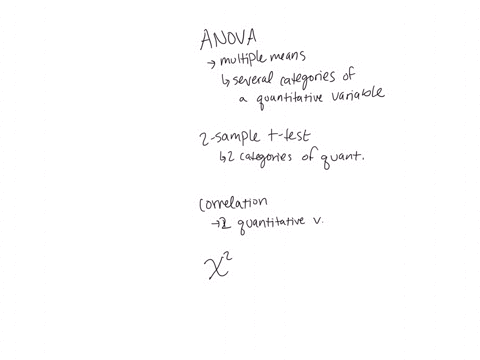 ANOVA
→ multiple means
↳ several categories of
a quantitative variable
2-sample t-test
↳ 2 categories of quant.
Correlation
→ 2 quantitative v.
χ²